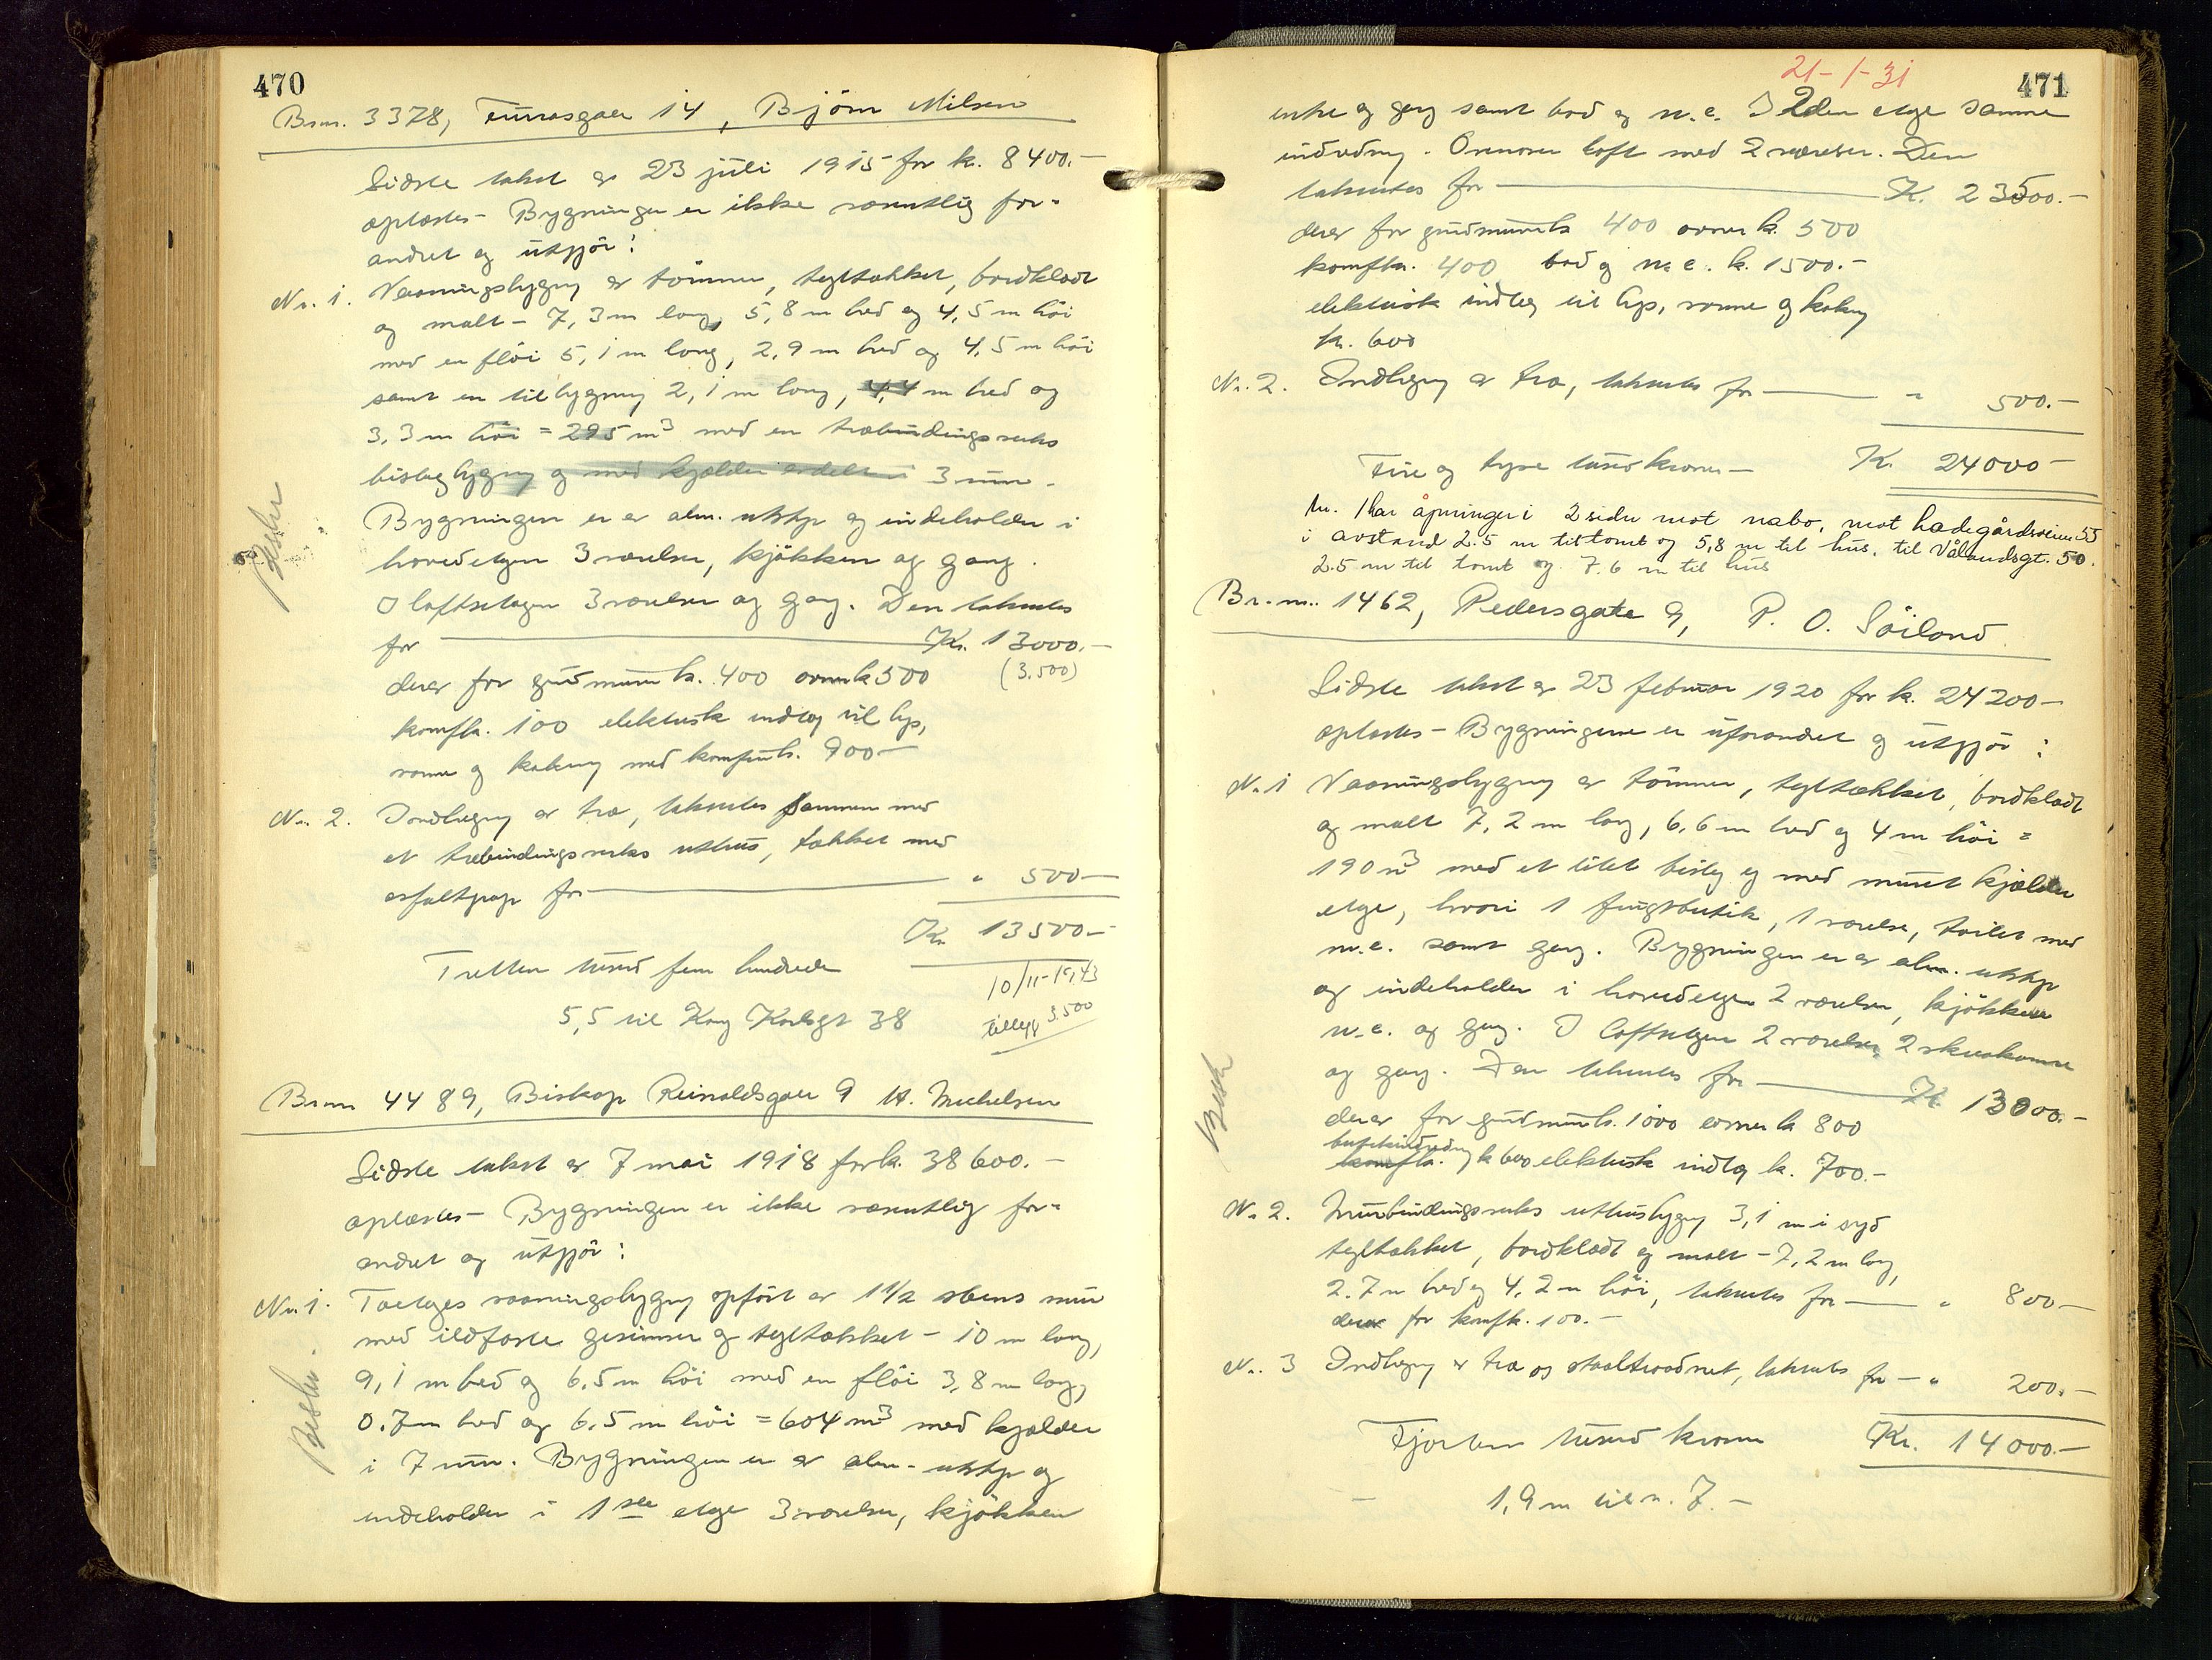 470
Br.nr. 3378, 14, Bjørn Nilsen
Sidste takst er 23 juli 1915 for k. 8400.-
oplæstes - Bygningen er ikke væsentlig for-
andret og utgjør:
Nr. 1. Vaaningsbygng av tømmer, tegltækket, bordklædt
og malt - 7,3 m lang, 5,8 m bred og 4,5 m høi
med en fløi 5,1 m lang, 2,9 m bred og 4,5 m høi
samt en tilbygning 2,1 m lang, 4,4 m bred og
3,3 m høi = 295 m³ med en træbindingsverks
bislagbygng og med kjelder 3 rum.
Bygningen er av alm. utstyr og indeholder i
hovedetagen 3 værelser, kjøkken og gang.
I loftsetagen 3 værelser og gang. Den takseres
for Kr. 13000.-
(3.500)
derav for grundmur k. 400 ovner k 500
komfhr. 100 elektrisk indlæg til lys,
varme og kokning med komfur k. 900-
Nr. 2. Indhegng av træ, takseres sammen med
et træbindingsverks uthus, tækket med
asfaltpap for " 500-
Kr. 13500-
Tretten tusind fem hundrede
10/11-1943
tillegg 3.500
5,5 til Kong Karlsgt 38
Br.nr. 4489, Biskop Reinaldsgate 9 H. Michelsen
Sidste takst er 7 mai 1918 for k. 38600.-
oplæstes - Bygningen er ikke væsentlig for-
andret og utgjør:
Nr. 1. Toetages vaaningsbygng opført av 1 1/2 stens mur
med ildfaste gesimser og tegltækket - 10 m lang,
9,1 m bred og 6,5 m høi med en fløi 3,8 m lang,
0.7 m bred og 6.5 m høi = 604 m³ med kjælder
i 7 rum. Bygningen er av alm. utstyr og
indeholder i 1ste etage 3 værelser, kjøkken
21-1-31
471
entre og gang samt bad og w.c. I 2den etage samme
indredning. Ovenover loft med 2 værelser. Den
takseres for K. 23500.-
derav for grundmur k 400 ovner k. 500
komfhr. 400 bad og w.c. k. 1500.-
elektrisk indlæg til lys, varme og kokng
k. 600
Nr. 2. Indhegng av træ, takseres for " 500.-
Fire og tyve tusind kroner - Kr. 24000-
Nr. 1 har åpninger i 2 sider mot nabo, mot Ladegårdsveien 53
i avstand 2.5 m til tomt og 5,8 m til hus, til Vålandsgt. 50.
2.5 m til tomt og 7.6 m til hus
Br.nr. 1462, Pedersgate 9, P. O. Söiland
Sidste takst er 23 februar 1920 for k. 24200-
oplæstes - Bygningene er uforandret og utgjør:
Nr. 1 Vaaningsbygng av tømmer, tegltækket, bordklædt
og malt 7,2 m lang, 6,6 m bred og 4 m høi =
190 m³ med et litet bislag og med muret kjælder
etage, hvori 1 butik, 1 værelse, toilet med
w.c. samt gang. Bygningen er av alm. utstyr
og indeholder i hovedetagen 2 værelser, kjøkken
w.c. og gang. I loftsetagen 2 værelser 2 skraakamre
og gang. Den takseres for Kr. 13000.-
derav for grundmur k. 1000 ovner k 800
butikindredng k 600 elektrisk indlæg k. 700.-
Nr. 2. Murbindingsverks uthusbygng 3,1 m i syd
tegltækket, bordklædt og malt - 7,2 m lang,
2.7 m bred og 4,2 m høi, takseres for " 800-
derav for komfhr. 100.-
Nr. 3 Indhegng av træ og staaltraadnet, takseres for - " 200.-
Fjorten tusind kroner Kr. 14000.-
- 1,9 m til nr. 7. -